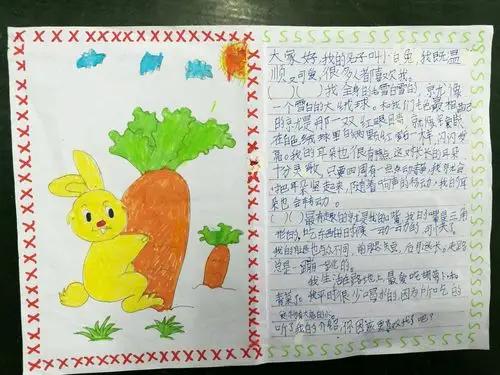 大家好,我的名字叫小白兔,我既温
顺又可爱,很多人都喜欢我。
( )( )我全身的毛雪白雪白的,就像
一个雪白的大线球。和我们毛色最相配
的就是那一双红眼睛,就像
在线球里的两颗红宝石一样,闪闪发
亮。我的耳朵也很有趣,这对长长的耳朵
十分灵敏,只要四周有一点动静,我就会
把耳朵竖起来,随着响声的移动,我的耳
朵也会转动。
( )( )最有趣的就是我的嘴,我的嘴是三角
形的,吃东西的时候一动一动的,可
我的腿也与众不同,前腿短,后腿长,走路
总是一蹦一跳的。
我生活在陆地上,最爱吃胡萝卜和
青菜了。我平时很少喝水的,因为所吃的
听了我的介绍,你因该更喜欢我了吧?